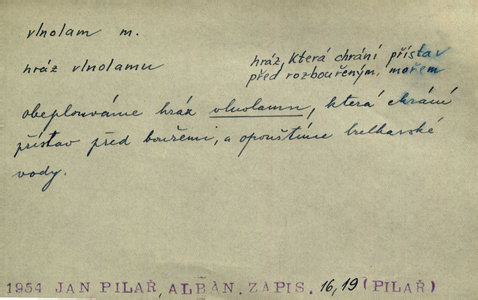 vlnolam m.
hráz vlnolamu hráz, která chrání přístav
před rozbouřeným, mořem
obeplouváme hráz vlnolamu, která chrání
přístav před bouřemi, a opouštíme bulharské
vody.
1954 JAN PILAŘ, ALBÁN. ZÁPIS. 16, 19 (PILAŘ)